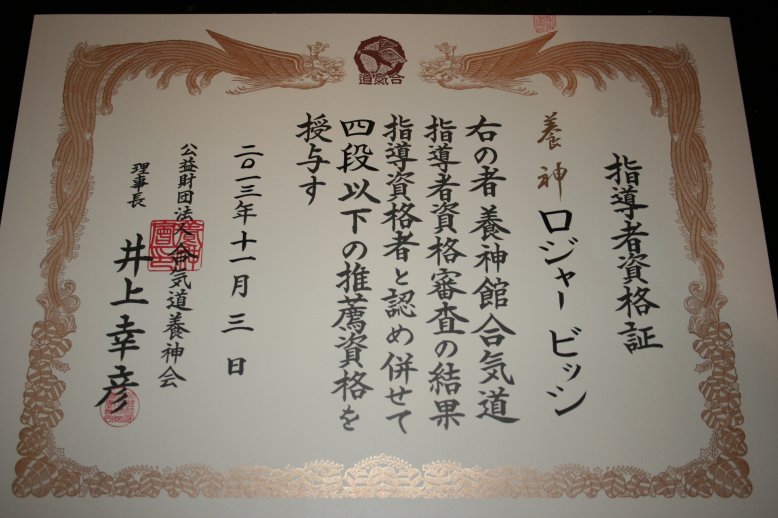 合氣道
指導者資格証
養神
ロジャー ビッソン
右の者養神館合気道
指導者資格審査の結果
指導資格者と認め併せて
四段以下の推薦資格を
授与す
二〇一三年十一月三日
公益財団法人合気道養神会
理事長 井上幸彦